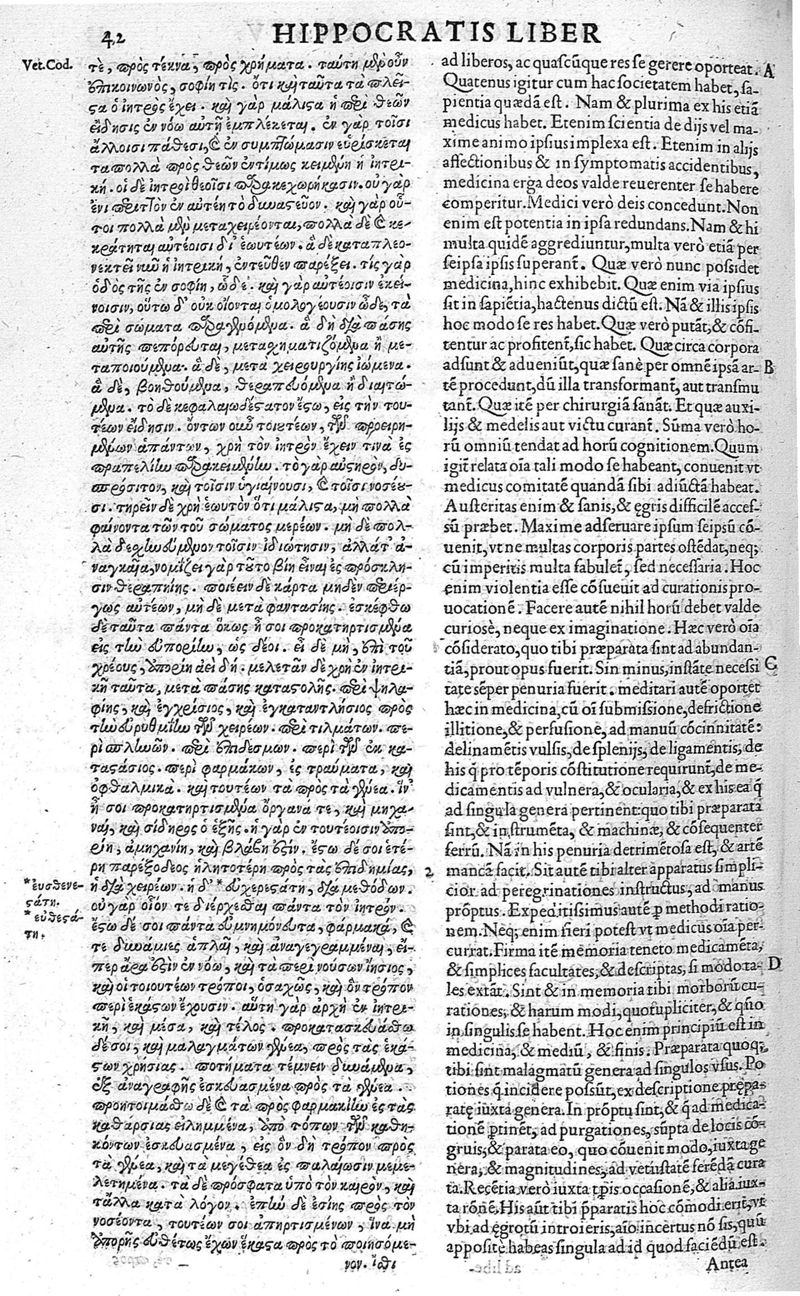 42 HIPPOCRATIS LIBER
Vet. Cod.
τὲ, πρὸς τέκνα, πρὸς χρήματα. ταύτη μὲν οὖν
ἐπικοινωνὸς, σοφίη τὶς. ὅτι καὶ ταῦτα τὰ πλεῖ-
στα ὁ ἰητρὸς ἔχει. καὶ γὰρ μάλιστα ἡ περὶ θεῶν
εἴδησις ἐν νόῳ αὐτὴ ἐμπλέκεται. ἐν γὰρ τοῖσι
ἄλλοισι πάθεσι, καὶ ἐν συμπτώμασιν εὑρίσκεται
τὰ πολλὰ πρὸς θεῶν ἐντίμως κειμένη ἡ ἰητρι-
κή. οἱ δὲ ἰητροὶ θεοῖσι παρακεχωρήκασιν. οὐ γὰρ
ἔνι περιττὸν ἐν αὐτέη τὸ δυναστεῦον. καὶ γὰρ οὗ-
τοι πολλὰ μὲν μεταχειρέονται, πολλὰ δὲ καὶ κε-
κράτηται αὐτέοισι δι' ἑωυτέων. ἃ δὲ καταπλεο-
νεκτεῖ νῦν ἡ ἰητρικὴ, ἐντεῦθεν παρέξει. τὶς γὰρ
ὁδὸς τῆς ἐν σοφίῃ, ὧδε. καὶ γὰρ αὐτέοισιν ἐκεί-
νοισιν, οὕτω δ' οὐκ οἴονται ὁμολογέουσιν ὧδε, τὰ
περὶ σώματα παραγινόμενα. ἃ δὴ διὰ πάσης
αὐτῆς πεπόρευται, μετασχηματιζόμενα ἢ με-
ταποιούμενα. ἃ δὲ, μετὰ χειρουργίης ἰώμενα.
ἃ δὲ, βοηθούμενα, θεραπευόμενα ἢ διαιτώ-
μενα. τὸ δὲ κεφαλαιωδέστατον ἔστω, εἰς τὴν του-
τέων εἴδησιν. ὄντων οὖν τοιουτέων, τῶν προειρη-
μένων ἁπάντων, χρὴ τὸν ἰητρὸν ἔχειν τινὰ εὐ-
τραπελίην παρακειμένην. τὸ γὰρ αὐστηρὸν, δυ-
σπρόσιτον, καὶ τοῖσιν ὑγιαίνουσι, καὶ τοῖσι νοσέου-
σι. τηρεῖν δὲ χρὴ ἑωυτὸν ὅτι μάλιστα, μὴ πολλὰ
φαίνοντα τῶν τοῦ σώματος μερέων. μὴ δὲ πολ-
λὰ λεσχηνευόμενον τοῖσιν ἰδιώτησιν, ἀλλὰ τ' ἀ-
ναγκαῖα, νομίζει γὰρ τοῦτο βίη εἶναι ἐς πρόσκλη-
σιν θεραπηίης. ποιέειν δὲ κάρτα μηδὲν περιέρ-
γως αὐτέων, μὴ δὲ μετὰ φαντασίης. ἐσκέφθω
δὲ ταῦτα πάντα ὅκως ᾖ σοι προκατηρτισμένα
εἰς τὴν εὐπορίην, ὡς δέοι. εἰ δὲ μὴ, ἐπὶ τοῦ
χρέους, ἀπορίη αἰεὶ δή. μελετᾶν δὲ χρὴ ἐν ἰητρι-
κῇ ταῦτα, μετὰ πάσης καταστολῆς. περὶ ψηλα-
φίης, καὶ ἐγχρίσιος, καὶ ἐγκαταντλήσιος πρὸς
τὴν εὐρυθμίην τῶν χειρέων. περὶ τιλμάτων. πε-
ρὶ σπληνῶν. περὶ ἐπιδέσμων. περὶ τῶν ἐκ κα-
ταστάσιος. περὶ φαρμάκων, ἐς τραύματα, καὶ
ὀφθαλμικὰ. καὶ τουτέων τὰ πρὸς τὰ γένεα. ἵν'
ᾖ σοι προκατηρτισμένα ὄργανά τε, καὶ μηχα-
ναὶ, καὶ σίδηρος ὁ ἑξῆς. ἡ γὰρ ἐν τουτέοισιν ἀπο-
ρίη, ἀμηχανίη, καὶ βλάβη ἐστίν. ἔστω δέ σοι ἑτέ-
ρη παρέξοδος ἡ λιτοτέρη πρὸς τὰς ἐπιδημίας,
ἡ διὰ χειρέων. ἡ δ' *εὐχερεστάτη, διὰ μεθόδων.
οὐ γὰρ οἷόν τε διέρχεσθαι πάντα τὸν ἰητρόν.
*εὐσθενε-
στάτη.
*εὐθεστά-
τη.
ἔστω δέ σοι πάντα εὐμνημόνευτα, φάρμακα, καὶ
τε δυνάμιες ἁπλαῖ, καὶ ἀναγεγραμμέναι, εἴ-
περ ἄρα ἐστὶν ἐν νόῳ, καὶ τὰ περὶ νούσων ἰήσιος,
καὶ οἱ τοιουτέων τρόποι, ὁσαχῶς, καὶ ὃν τρόπον
περὶ ἑκάστων ἔχουσιν. αὕτη γὰρ ἀρχὴ ἐν ἰητρι-
κῇ, καὶ μέσα, καὶ τέλος. προκατασκευάσθω
δέ σοι, καὶ μαλαγμάτων γένεα, πρὸς τὰς ἑκά-
στων χρήσιας. ποτήματα τέμνειν δυνάμενα,
ἐξ ἀναγραφῆς ἐσκευασμένα πρὸς τὰ γένεα.
προητοιμάσθω δὲ καὶ τὰ πρὸς φαρμακίην ἐς τὰς
καθάρσιας εἰλημμένα, ἀπὸ τόπων τῶν καθη-
κόντων ἐσκευασμένα, εἰς ὃν δὴ τρόπον πρὸς
τὰ γένεα, καὶ τὰ μεγέθεα ἐς παλαίωσιν μεμε-
λετημένα. τὰ δὲ πρόσφατα ὑπὸ τὸν καιρὸν, καὶ
τἆλλα κατὰ λόγον. ἐπὴν δὲ ἐσίης πρὸς τὸν
νοσέοντα, τουτέων σοι ἀπηρτισμένων, ἵνα μὴ
ἀπορῇς εὐθέτως ἔχων ἕκαστα πρὸς τὸ ποιησόμε-
νον. ἴσθι
ad liberos, ac quascũque res se gerere oporteat. A
Quatenus igitur cum hac societatem habet, sa-
pientia quædã est. Nam & plurima ex his etiã
medicus habet. Etenim scientia de dijs vel ma-
xime animo ipsius implexa est. Etenim in alijs
affectionibus & in symptomatis accidentibus,
medicina erga deos valde reuerenter se habere
comperitur. Medici verò deis concedunt. Non
enim est potentia in ipsa redundans. Nam & hi
multa quidẽ aggrediuntur, multa verò etiã per
seipsa ipsis superant. Quæ verò nunc possidet
medicina, hinc exhibebit. Quæ enim via ipsius
sit in sapiẽtia, hactenus dictũ est. Nã & illis ipsis
hoc modo se res habet. Quæ verò putãt, & cõfi-
tentur ac profitent, sic habet. Quæ circa corpora
adsunt & adueniũt, quæ sanè per omnẽ ipsã ar- B
tẽ procedunt, dũ illa transformant, aut transmu
tant. Quæ itẽ per chirurgiã sanãt. Et quæ auxi-
lijs & medelis aut victu curant. Sũma verò ho-
rũ omniũ tendat ad horũ cognitionem. Quum
igit relata oĩa tali modo se habeant, conuenit vt
medicus comitatẽ quandã sibi adiũctã habeat.
Austeritas enim & sanis, & egris difficilẽ acces-
sũ præbet. Maxime adseruare ipsum seipsũ cõ-
uenit, vt ne multas corporis partes ostẽdat, neq;
cũ imperitis multa fabulet, sed necessaria. Hoc
enim violentia esse cõsueuit ad curationis pro-
uocationẽ. Facere autẽ nihil horũ debet valde
curiosè, neque ex imaginatione. Hæc verò oĩa
cõsiderato, quo tibi præparata sint ad abundan-
tiã, prout opus fuerit. Sin minus, instãte necessi C
tate sẽper penuria fuerit. meditari autẽ oportet
hæc in medicina, cũ oĩ submissione, defrictione
illitione, & perfusione, ad manuũ cõcinnitatẽ:
de linamẽtis vulsis, de splenijs, de ligamentis, de
his q̃ pro tẽporis cõstitutione requirunt, de me-
dicamentis ad vulnera, & ocularia, & ex his ea q̃
ad singula genera pertinent: quo tibi præparata
sint, & instrumẽta, & machinæ, & cõsequenter
ferrũ. Nã in his penuria detrimẽtosa est, & artẽ
mancã facit. Sit autẽ tibi alter apparatus simpli-
2 cior ad peregrinationes instructus, ad manus
prõptus. Expeditissimus autẽ p̱ methodi ratio-
nem. Neq; enim fieri potest vt medicus oĩa per-
currat. Firma itẽ memoria teneto medicamẽta,
& simplices facultates, & descriptas, si modo ta- D
les extãt. Sint & in memoria tibi morborũ cu-
rationes, & harum modi, quotupliciter, & quõ
in singulis se habent. Hoc enim principiũ est in
medicina, & mediũ, & finis. Præparata quoq;
tibi sint malagmatũ genera ad singulos vsus. Po
tiones q̃ incidere possũt, ex descriptione præpa-
ratę iuxta genera. In prõptu sint, & q̃ ad medica-
tionẽ ptinẽt, ad purgationes, sũpta de locis cõ-
gruis, & parata eo, quo cõuenit modo, iuxta ge
nera, & magnitudines, ad vetustatẽ ferẽdã cura
ta. Recẽtia verò iuxta tp̃is occasionẽ, & alia iux-
ta rõnẽ. His aũt tibi p̃paratis hoc cõmodi erit, vt
vbi ad ęgrotũ introieris, aĩo incertus nõ sis, quũ
apposite habeas singula ad id quod faciẽdũ est.
Antea